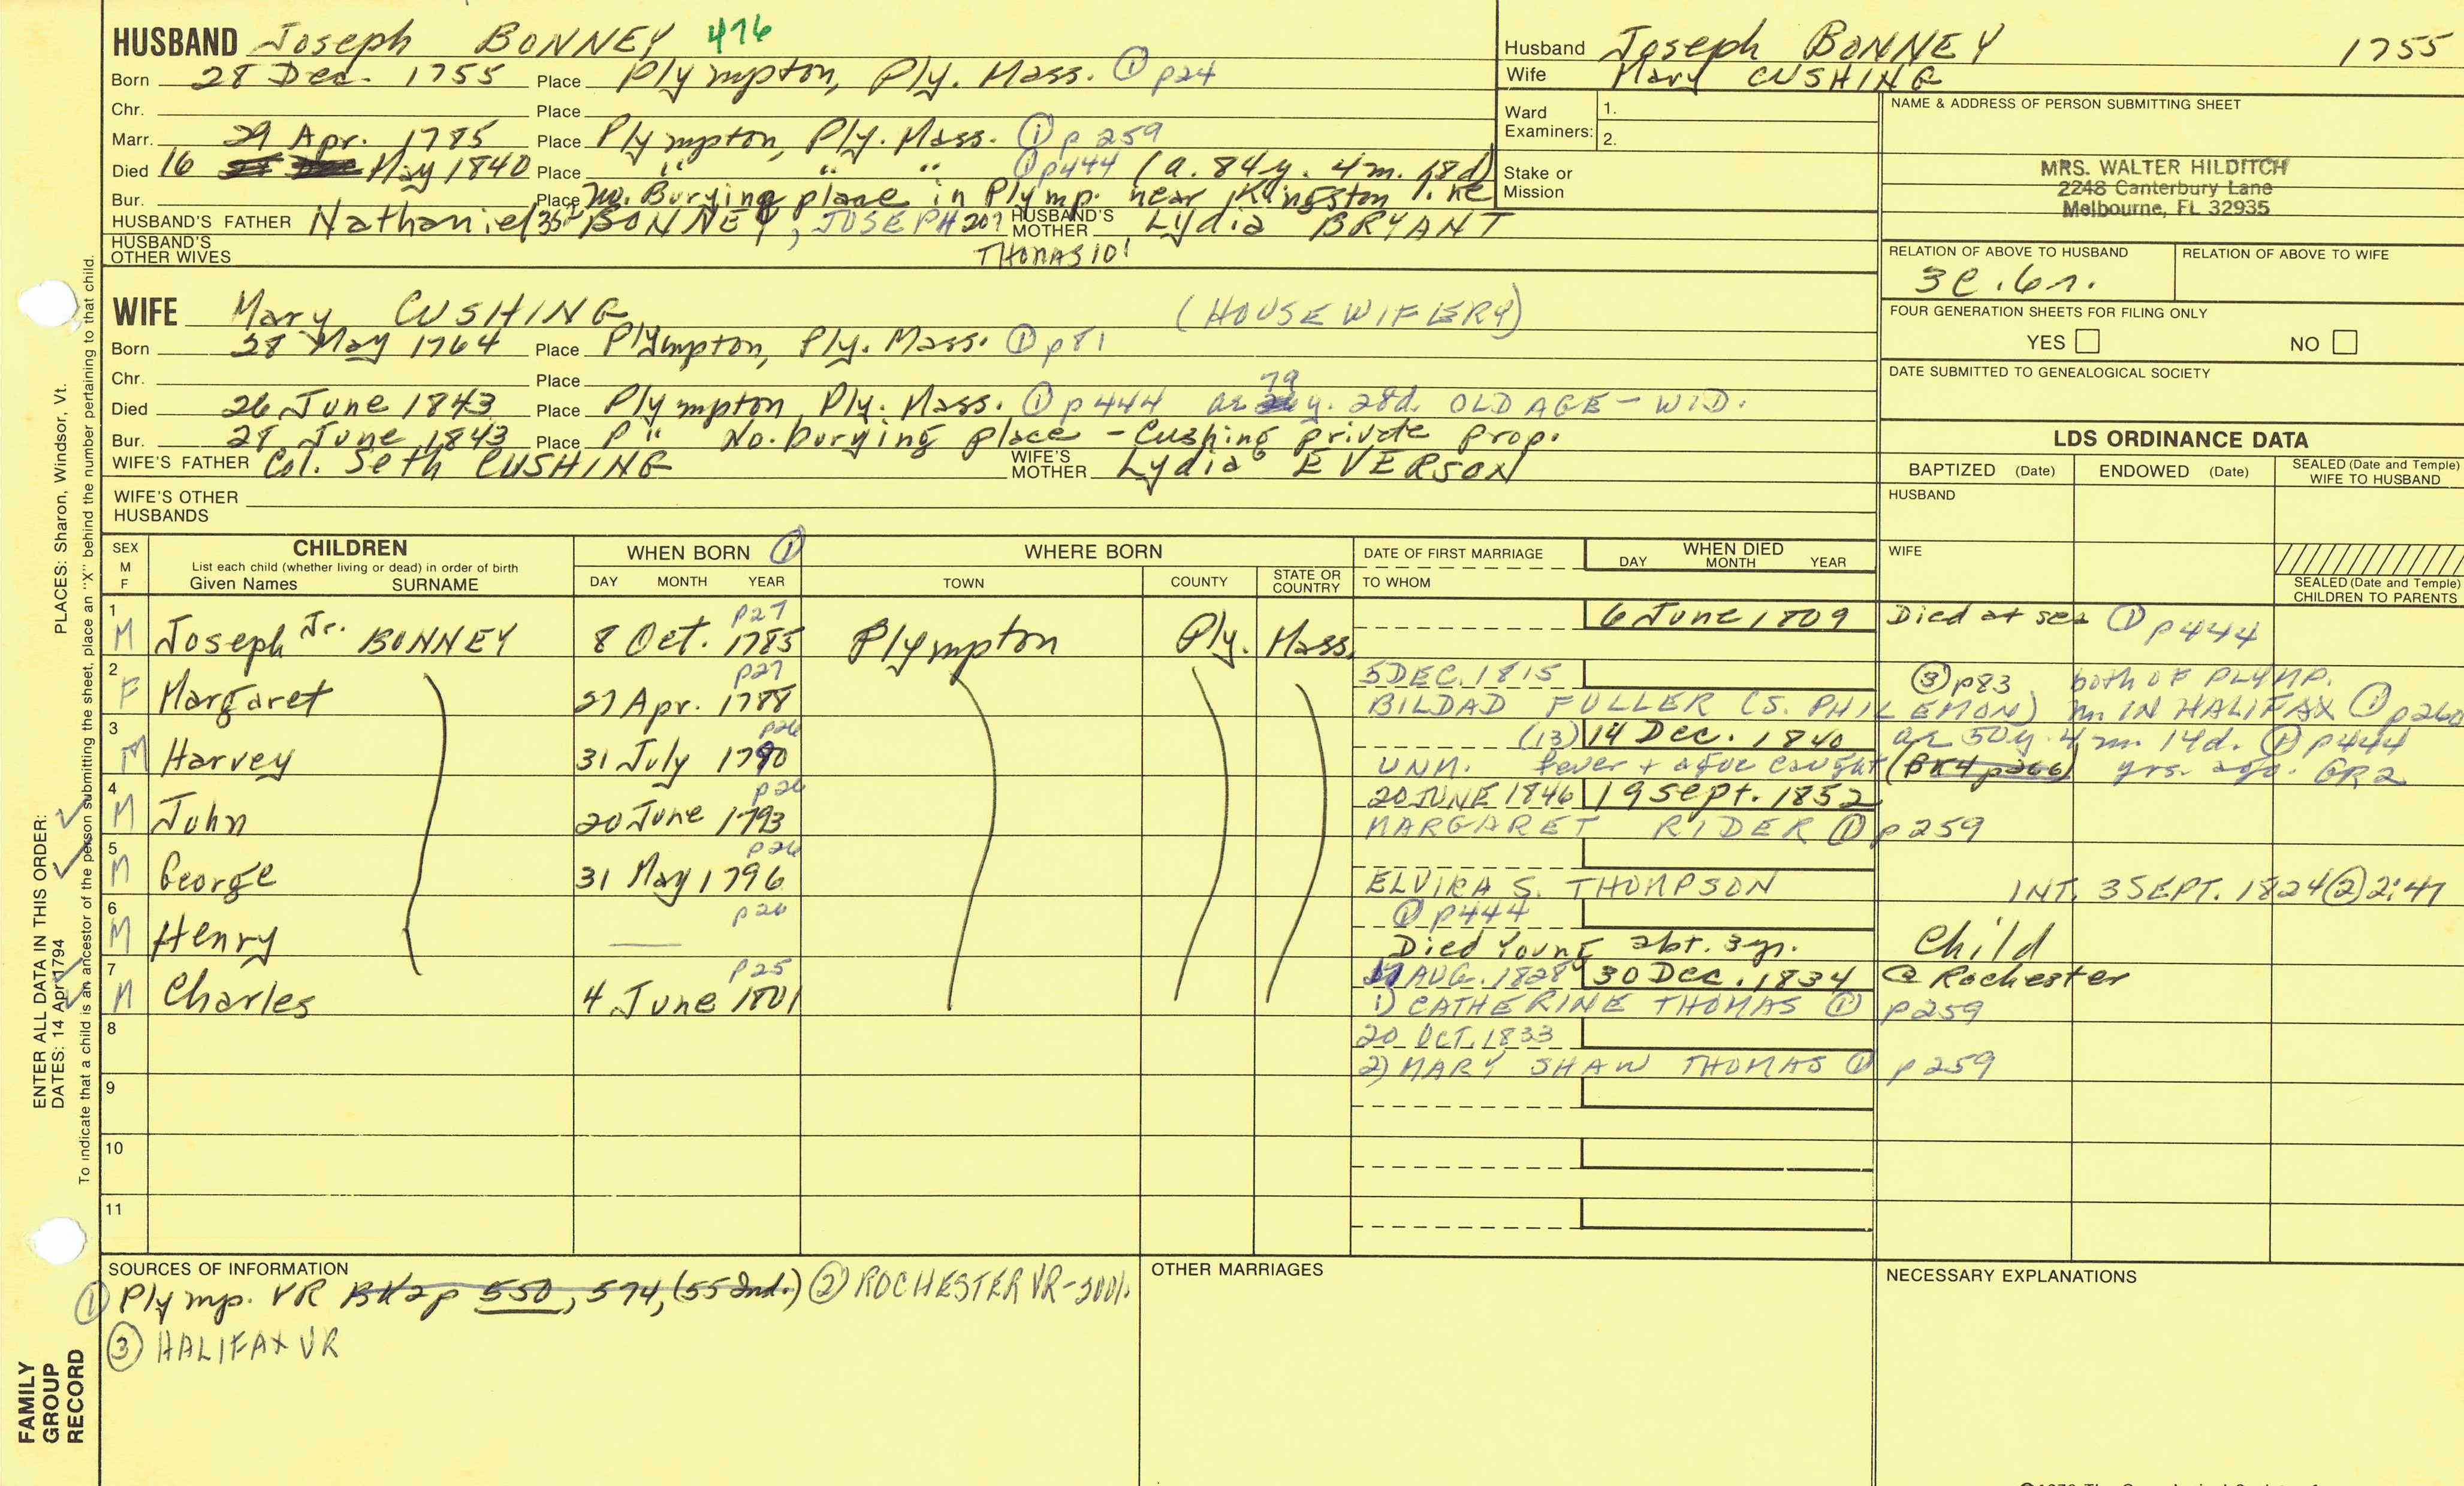 HUSBAND Joseph BONNEY 476
Born 28 Dec. 1755 Place Plympton, Ply. Mass. ① p24
Chr. Place
Marr. 29 Apr. 1785 Place Plympton, Ply. Mass. ① p 259
Died 16 May 1840 Place " " " ① p444 (a. 84y. 4m. 18d)
Bur. Place No. Burying place in Plymp. near Kingston line
HUSBAND'S FATHER Nathaniel 352 BONNEY, JOSEPH 207 HUSBAND'S MOTHER Lydia BRYANT
HUSBAND'S OTHER WIVES THOMAS 101
WIFE Mary CUSHING (HOUSEWIFERY)
Born 28 May 1764 Place Plympton, Ply. Mass. ① p81
Chr. Place
79
Died 26 June 1843 Place Plympton, Ply. Mass. ① p444 ae y. 28d. OLD AGE - WID.
Bur. 28 June 1843 Place P " No. burying place - Cushing private prop.
WIFE'S FATHER Col. Seth CUSHING WIFE'S MOTHER Lydia EVERSON
WIFE'S OTHER HUSBANDS
Husband Joseph BONNEY 1755
Wife Mary CUSHING
Ward Examiners: 1.
2.
Stake or Mission
NAME & ADDRESS OF PERSON SUBMITTING SHEET
MRS. WALTER HILDITCH
2248 Canterbury Lane
Melbourne, FL 32935
RELATION OF ABOVE TO HUSBAND RELATION OF ABOVE TO WIFE
3c.6r.
FOUR GENERATION SHEETS FOR FILING ONLY
YES NO
DATE SUBMITTED TO GENEALOGICAL SOCIETY
LDS ORDINANCE DATA
BAPTIZED (Date) ENDOWED (Date) SEALED (Date and Temple) WIFE TO HUSBAND
HUSBAND
WIFE
SEALED (Date and Temple) CHILDREN TO PARENTS
SEX M F CHILDREN WHEN BORN ① WHERE BORN DATE OF FIRST MARRIAGE WHEN DIED
List each child (whether living or dead) in order of birth
Given Names SURNAME DAY MONTH YEAR TOWN COUNTY STATE OR COUNTRY TO WHOM DAY MONTH YEAR
1 p27 6 June 1809 Died at sea ① p444
M Joseph Jr. BONNEY 8 Oct. 1785 Plympton Ply. Mass.
2 p27 5 DEC. 1815 ③ p83 both OF PLYMP.
F Margaret 27 Apr. 1788 BILDAD FULLER (S. PHILEMON) m. IN HALIFAX ① p260
3 p26 (13) 14 Dec. 1840 ae 50y. 4m. 14d. ① p444
M Harvey 31 July 1790 UNM. fever + ague caught (BK4 p266) yrs. ago. GR2
4 p26 20 JUNE 1846 19 Sept. 1852
M John 20 June 1793 MARGARET RIDER ① p259
5 p26
M George 31 May 1796 ELVIRA S. THOMPSON INT. 3 SEPT. 1824 ② 2:47
6 p26 ① p444
M Henry — Died Young abt. 3 yr. Child
7 p25 AUG. 1828 30 Dec. 1834 @ Rochester
M Charles 4 June 1801 1) CATHERINE THOMAS ① p259
8 20 OCT. 1833
2) MARY SHAW THOMAS ① p259
9
10
11
SOURCES OF INFORMATION OTHER MARRIAGES NECESSARY EXPLANATIONS
① Plymp. VR BK2p 550, 574, (55 2nd.) ② ROCHESTER VR-
③ HALIFAX VR
ENTER ALL DATA IN THIS ORDER:
PLACES: Sharon, Windsor, Vt.
DATES: 14 Apr 1794
To indicate that a child is an ancestor of the person submitting the sheet, place an "X" behind the number pertaining to that child.
FAMILY
GROUP
RECORD